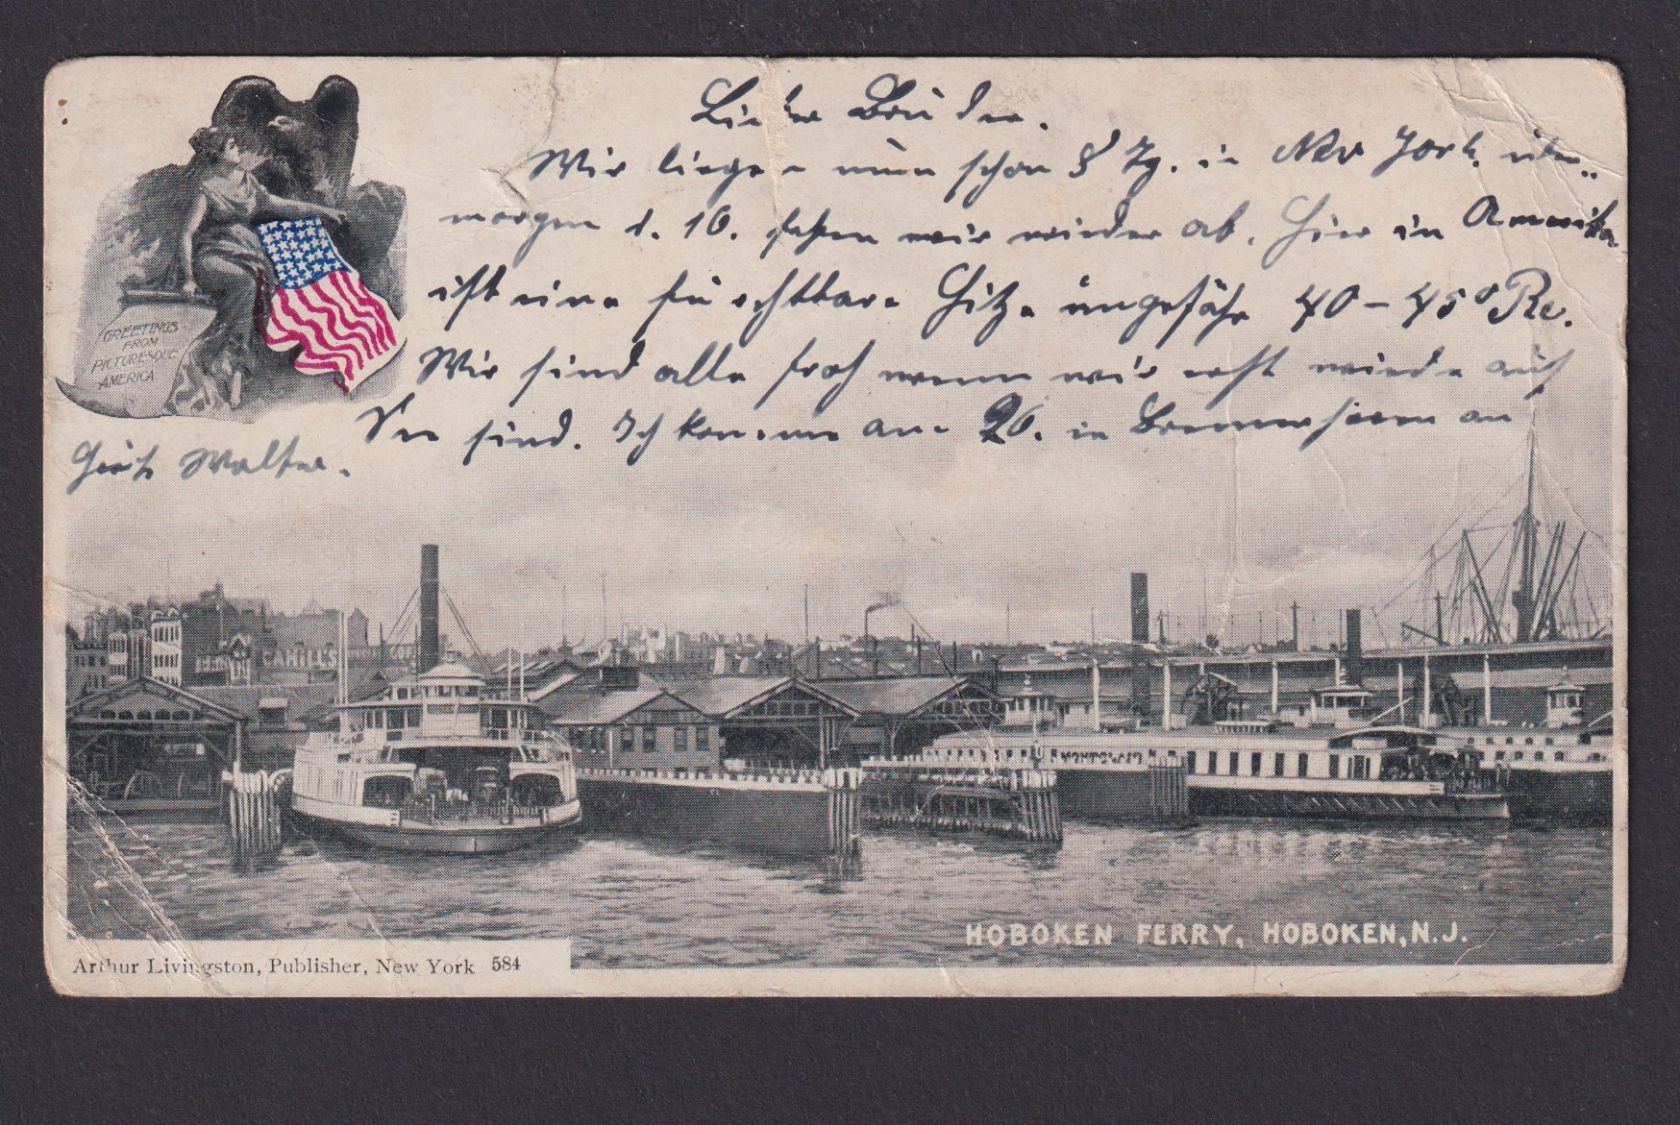 Lieber Bruder.
Wir liegen nun schon 8 Tg. in New York. über-
morgen d. 10. fahren wir wieder ab. Hier in Amerika
ist eine furchtbare Hitze ungefähr 40 - 45° Re.
Wir sind alle froh wenn wir erst wieder auf
See sind. Ich komme am 26. in Bremerhaven an
Gruß Walter.
GREETINGS
FROM
PICTURESQUE
AMERICA
CAHILLS
HOBOKEN FERRY, HOBOKEN, N.J.
Arthur Livingston, Publisher, New York 584